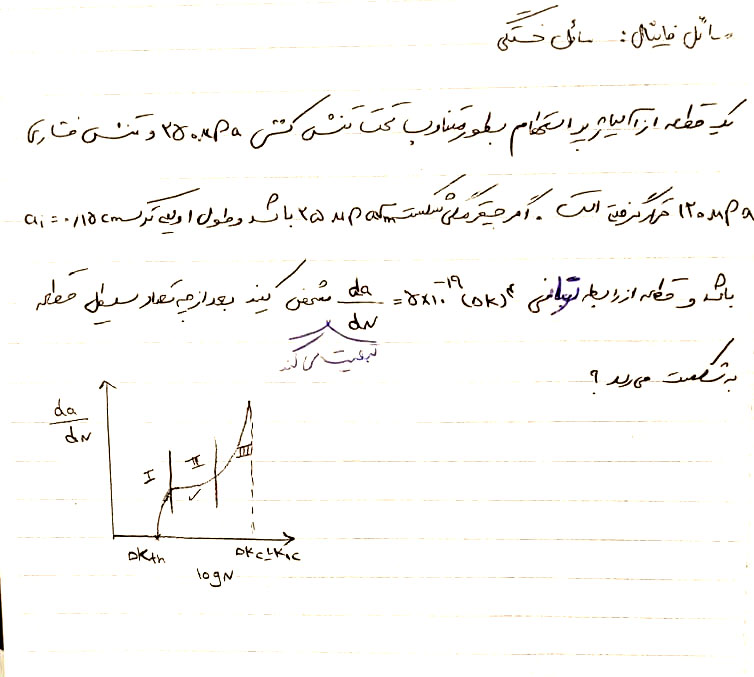 مسائل فاینال: مسائل خستگی
یک قطعه از آلیاژ پر استحکام بطور متناوب تحت تنش کششی ۲۵۰ MPa و تنش فشاری
۱۲۰ MPa قرار گرفته است. اگر چقرمگی شکست ۲۵ MPa√m باشد و طول اولیه ترک ai = ۰/۱۵ cm
باشد و قطعه از رابطه توانی da/dN = ۵×۱۰^-۱۹ (ΔK)^۴ مشخص کنید بعد از چه تعداد سیکل قطعه
تبعیت می کند
به شکست می رسد؟
da/dN
I II III
ΔKth ΔKc KIC
log N